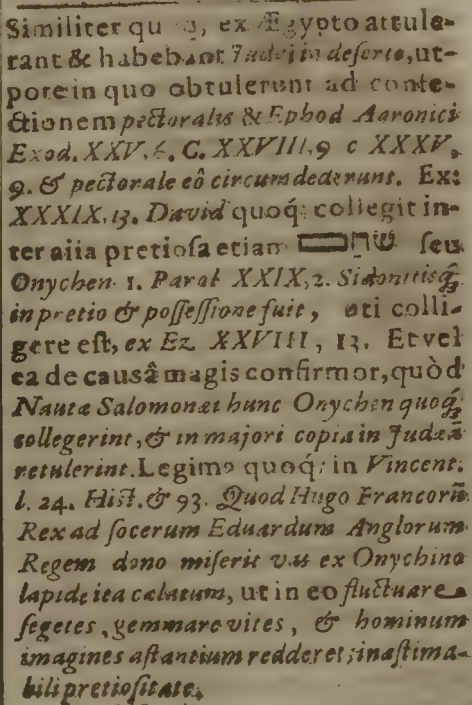 Similiter qu q́;, ex Ægypto attule-
rant & habebant Judæi in deserto, ut-
pote in quo obtulerunt ad confe-
ctionem pectoralis & Ephod Aaronici
Exod. XXV, 6. C. XXVIII, 9 c XXXV,
9. & pectorale eô circumdederunt. Ex:
XXXIX. 13. David quoq́; collegit in-
ter alia pretiosa etiam שׁהם seu
Onychen 1. Paral XXIX, 2. Sidoniisq́;
in pretio & possessione fuit, uti colli-
gere est, ex Ez XXVIII, 13. Et vel
ea de causâ magis confirmor, quòd
Nautæ Salomonæi hunc Onychen quoq́;
collegerint, & in majori copia in Judæã
retulerint. Legim9 quoq́; in Vincent.
l. 24. Hist. & 93. Quod Hugo Francorũ
Rex ad socerum Eduardum Anglorum
Regem dono miserit vas ex Onychino
lapide ita cælatum, ut in eo fluctuare
segetes, gemmare vites, & hominum
imagines astantium redderet; inæstima-
bili pretiositate.